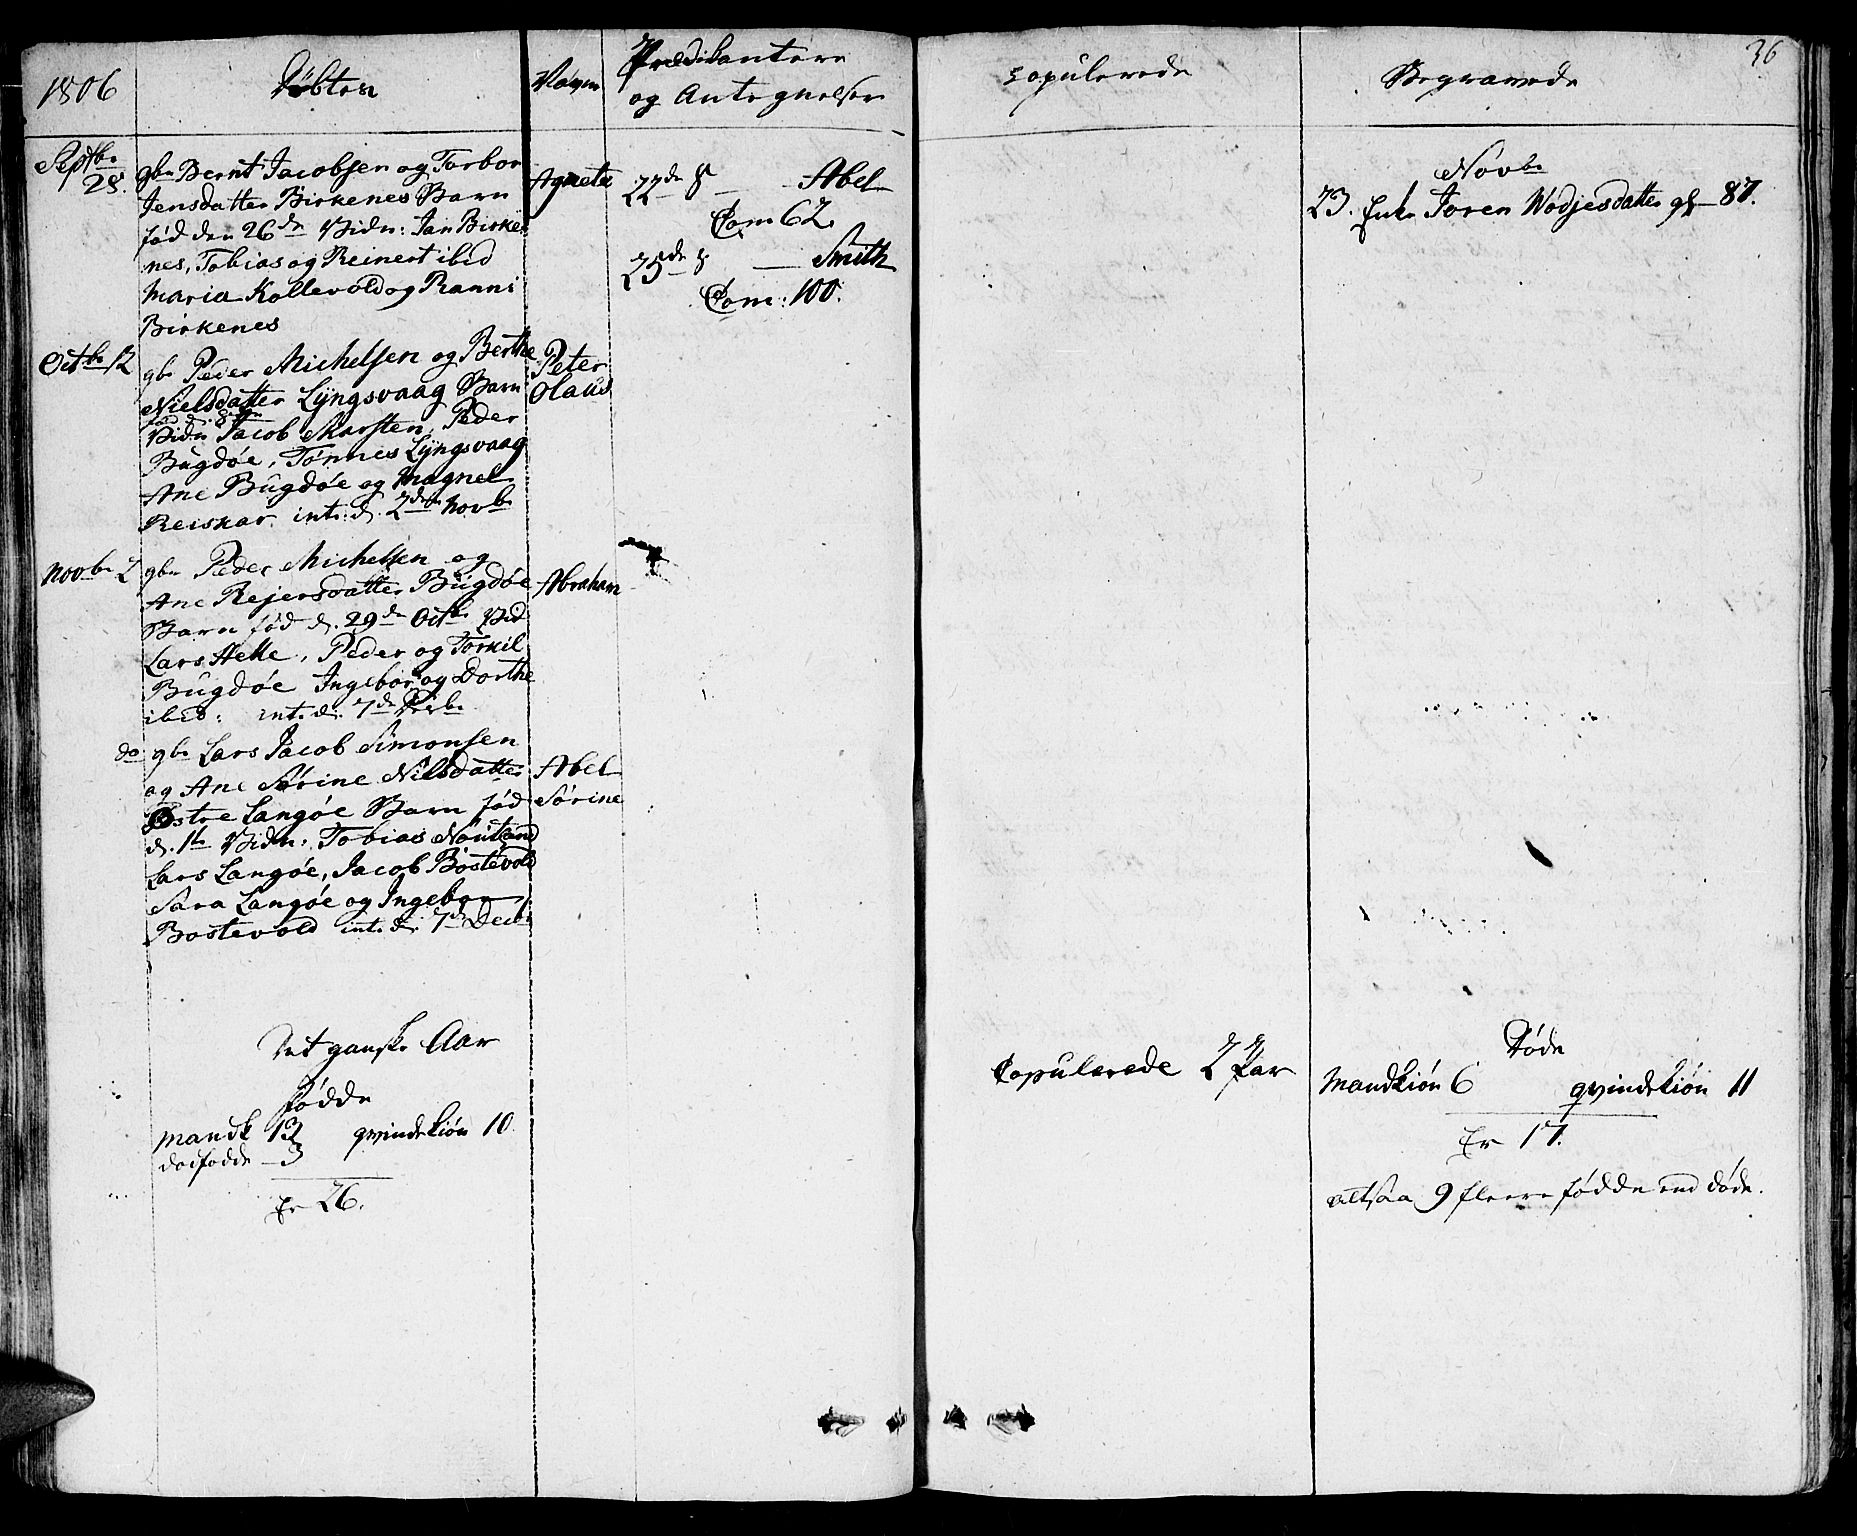 1806
Døbte
Navn
Prædikantere
og Antegnelser
Septbr
28.
gbr Bernt Jacobsen og Torbor
Jensdatter Birkenes Barn
fød den 26de Vidn: Jan Birke
nes, Tobias og Reinert ibid
Maria Kollevold og Ranni
Birkenes
Agneta
22de S — Abel
Com 62.
25de S — Smith
Com: 100.
Octbr 12
gbr Peder Michelsen og Berthe
Nielsdatter Lyngsvaag Barn
fød d. 8de
Vidn Jacob Skarsten, Peder
Bugdøe, Tönnes Lyngsvaag
Ane Bugdøe og Magnel
Reiskar. int: d. 2de Novb
Peter
Olaus
Novbr 2
gbr Peder Michelsen og
Ane Rejersdatter Bugdøe
Barn fød d. 29de Octb Vid
Lars Helle, Peder og Torkil
Bugdøe Ingebor og Dorthe
ibid: int. d. 7de Decbr
Abraham
do
gbr Lars Jacob Simonsen
og Ane Sörine Nilsdatter
Østre Langøe Barn fød
d. 1te Vidn: Tobias Noutland
Lars Langøe, Jacob Bostevold
Sara Langøe og Ingebor
Bostevold int. d. 7de Decbr
Abel
Sörine
Det ganske Aar
fødde
Mandk 13 qvindekiön 10
dødfødde — 3
Er 26.
36
Copulerede
Begravede
Novbr
23. Enke Joren Wodjesdatter gl — 87.
Copulerede 2 Par
Døde
Mandkiön 6 qvindekiön 11
Er 17.
altsaa 9 fleere fødde end døde.